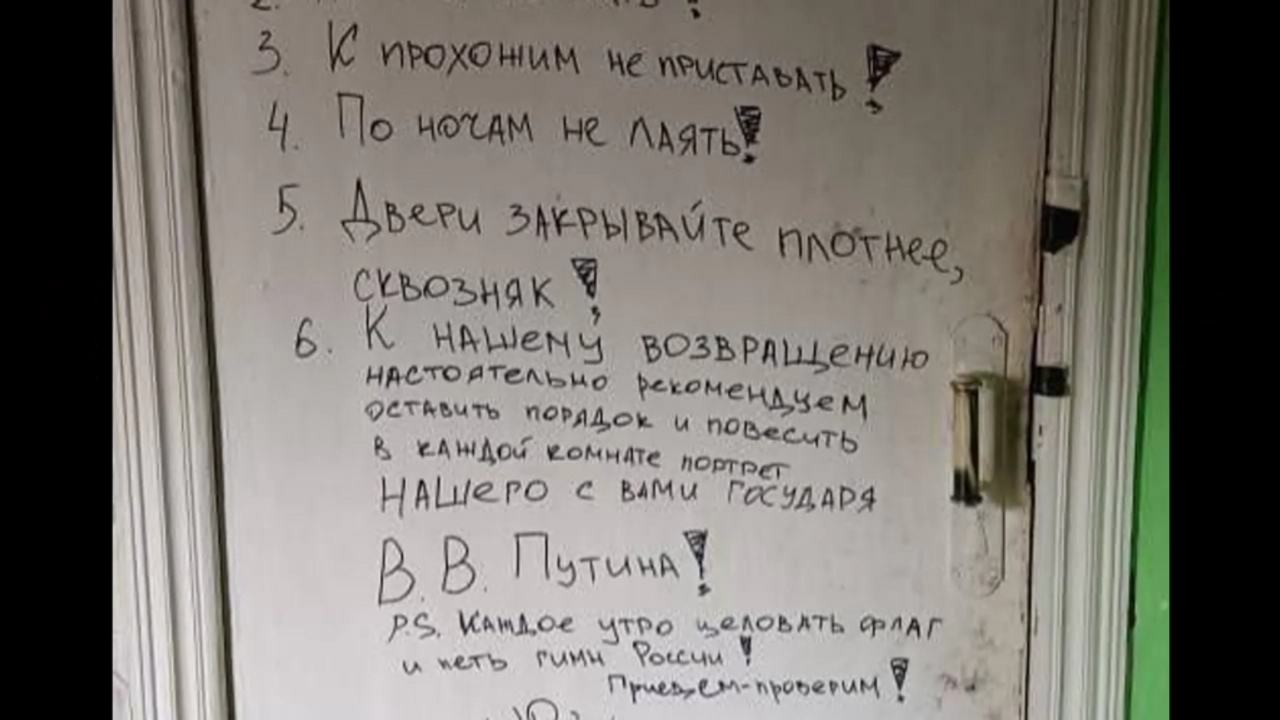 2.
3. К прохожим не приставать!
4. По ночам не лаять!
5. Двери закрывайте плотнее,
сквозняк!
6. К нашему возвращению
настоятельно рекомендуем
оставить порядок и повесить
в каждой комнате портрет
нашего с вами государя
В. В. Путина!
P.S. Каждое утро целовать флаг
и петь гимн России!
Приедем-проверим!